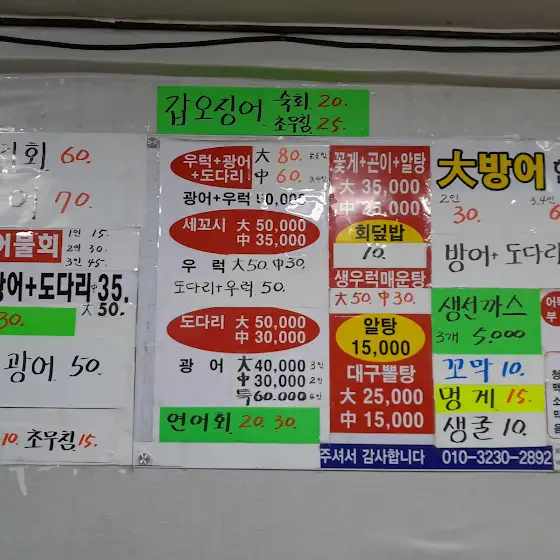 갑오징어 숙회 20.
초무침 25.
회 60.
70.
물회 1인 15.
2인 30.
3인 45.
광어+도다리 中 35.
大 50.
30.
광어 50.
10. 초무침 15.
우럭+광어+도다리 大 80. 5.6인
中 60. 3.4인
광어+우럭 60,000
세꼬시 大 50,000
中 35,000
우럭 大 50. 中 30.
도다리+우럭 50.
도다리 大 50,000
中 30,000
광어 大 40,000 3인
中 30,000 2인
특 60.000 4인
연어회 20. 30.
꽃게+곤이+알탕
大 35,000
中 25,000
회덮밥
10.
생우럭매운탕
大 50. 中 30.
알탕
15,000
대구뽈탕
大 25,000
中 15,000
大방어
2인 3.4인
30.
방어+도다리
생선까스
3개 5,000
꼬막 10.
멍게 15.
생굴 10.
주셔서 감사합니다 010-3230-2892